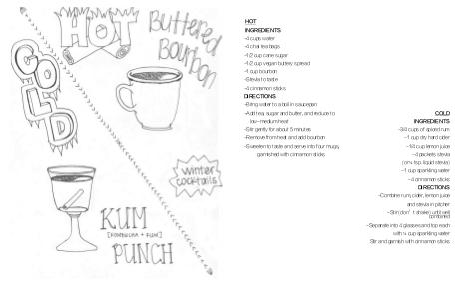 HOT
Buttered
Bourbon
COLD
winter
cocktails
KUM
[KOMBUCHA + RUM]
PUNCH
HOT
INGREDIENTS
-4 cups water
-4 chai tea bags
-1/2 cup cane sugar
-1/2 cup vegan buttery spread
-1 cup bourbon
-Stevia to taste
-4 cinnamon sticks
DIRECTIONS
-Bring water to a boil in saucepan
-Add tea, sugar and butter, and reduce to
low-medium heat
-Stir gently for about 5 minutes
-Remove from heat and add bourbon
-Sweeten to taste and serve into four mugs,
garnished with cinnamon sticks
COLD
INGREDIENTS
-3/4 cups of spiced rum
-1 cup dry hard cider
-1/4 cup lemon juice
-4 packets stevia
(or ¼ tsp. liquid stevia)
-1 cup sparkling water
-4 cinnamon sticks
DIRECTIONS
-Combine rum, cider, lemon juice
and stevia in pitcher
-Stir (don't shake) until well
combined
-Separate into 4 glasses and top each
with ¼ cup sparkling water
Stir and garnish with cinnamon sticks